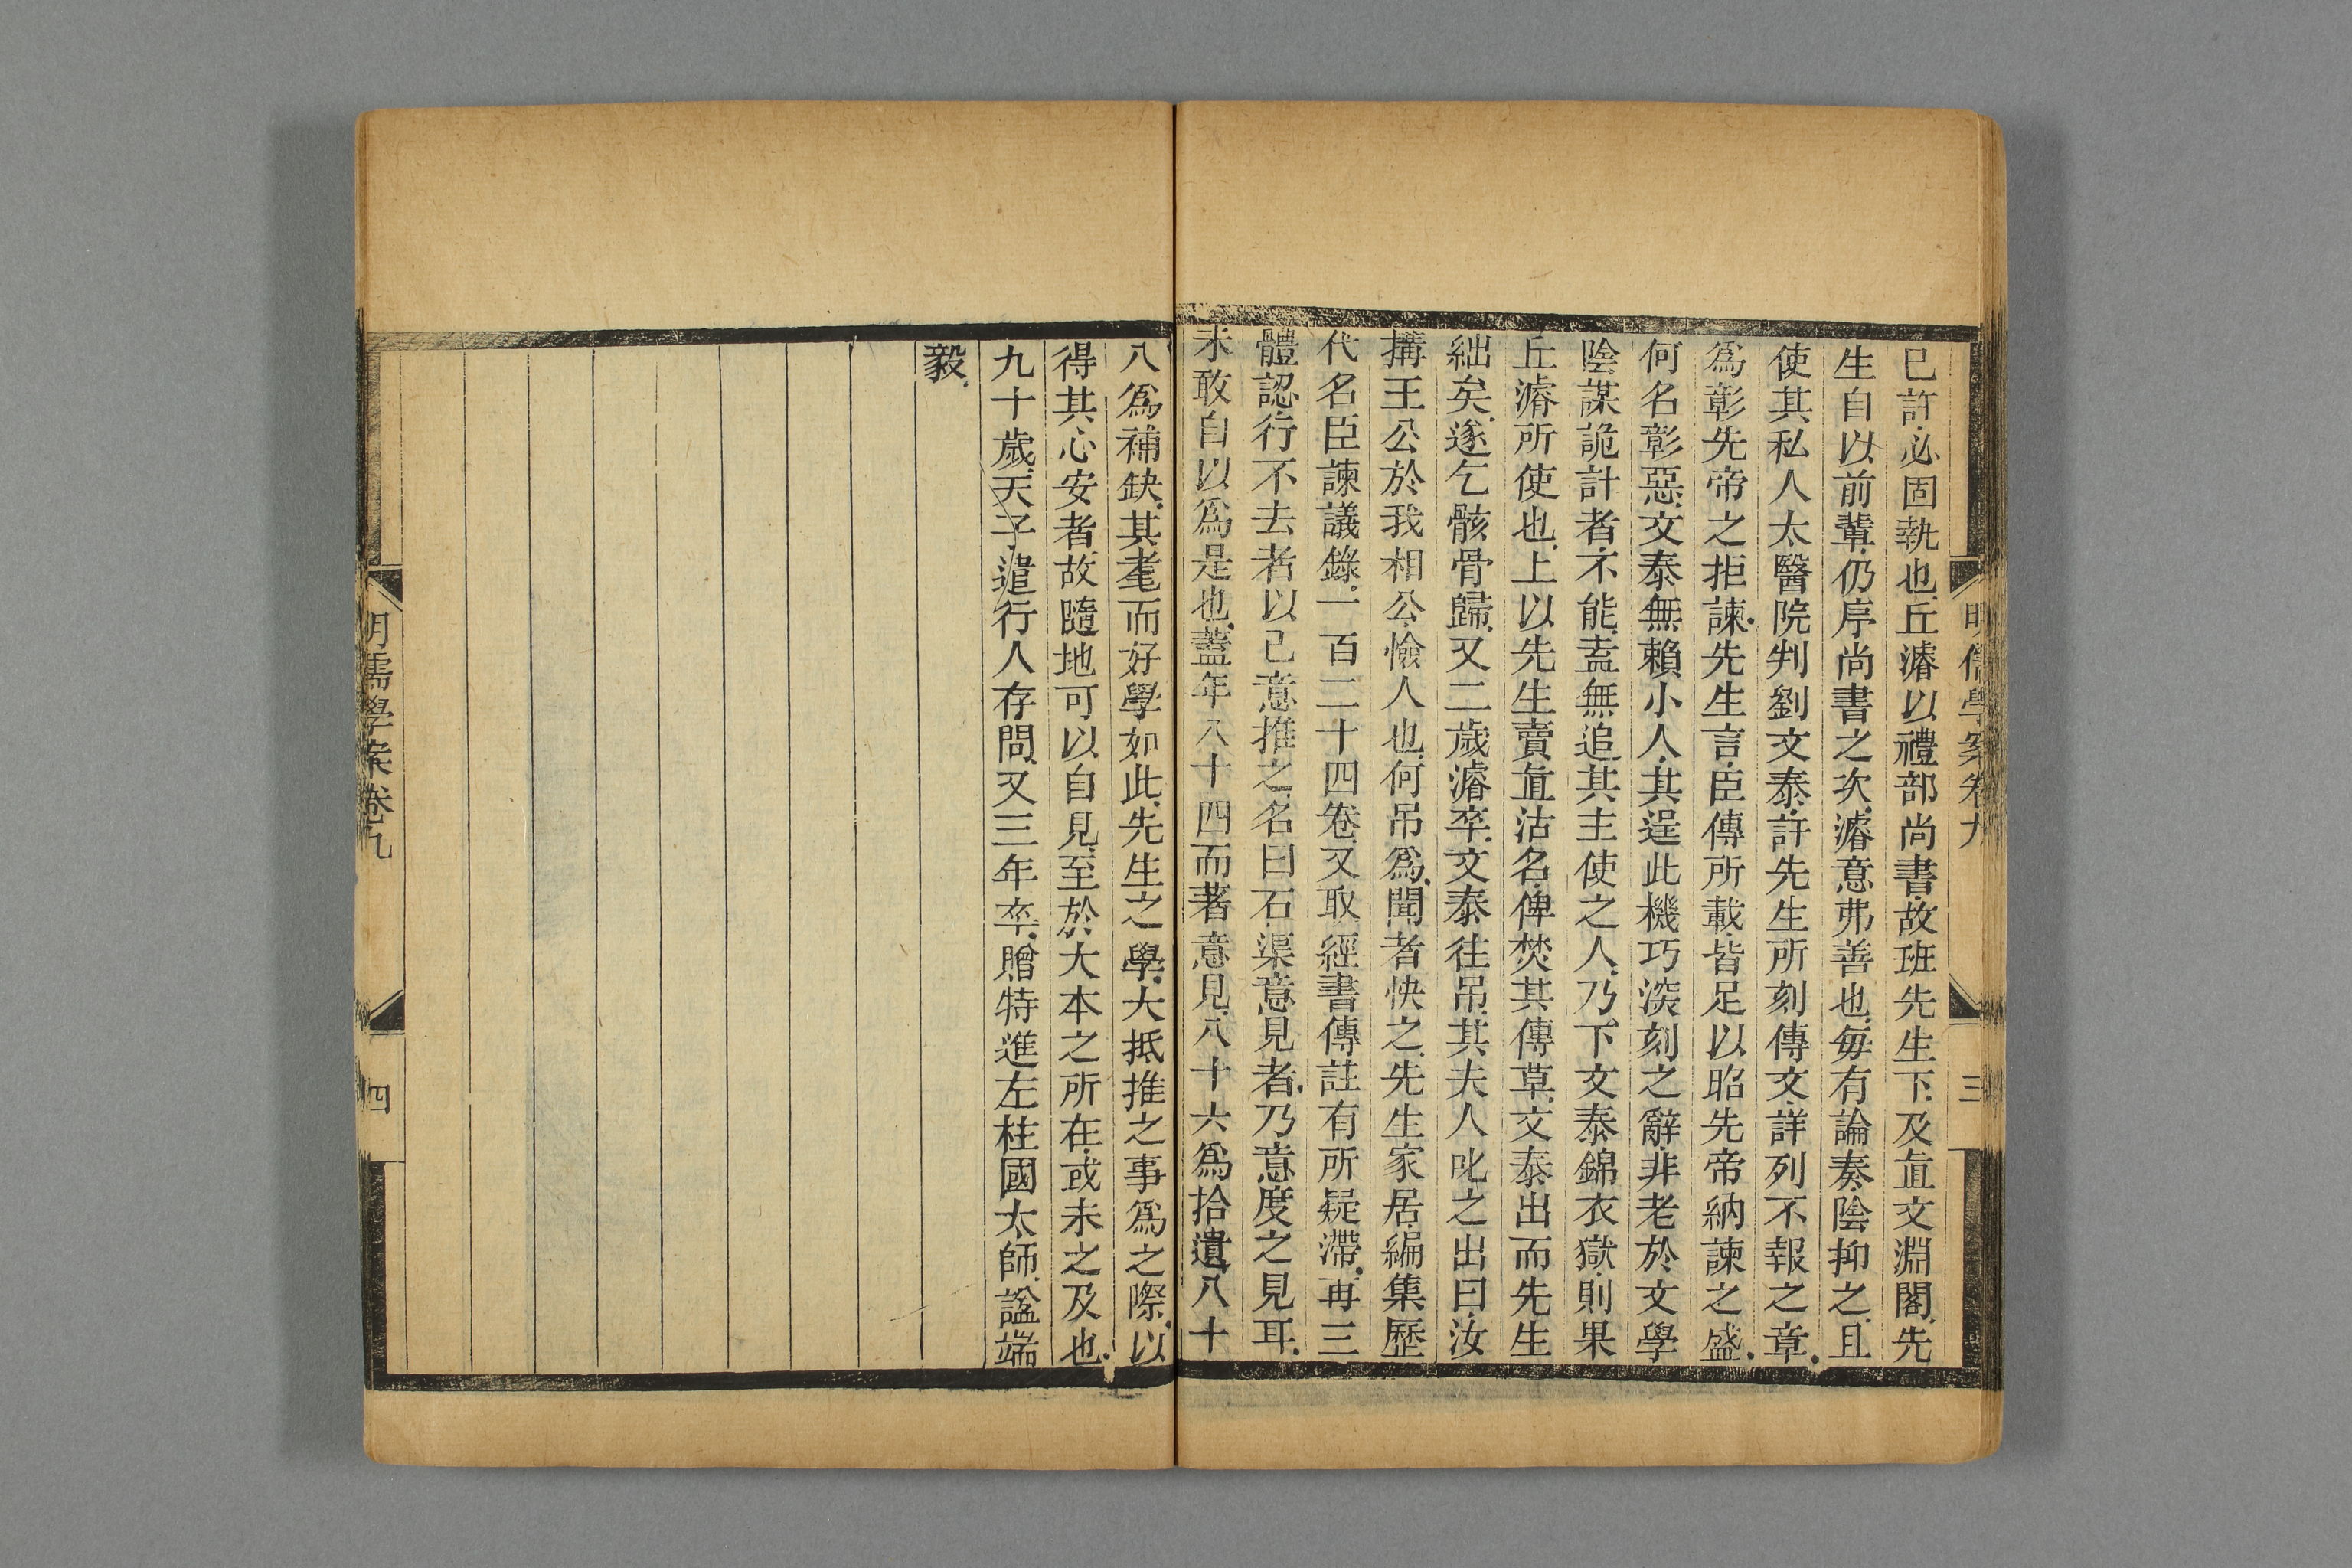 明儒學案卷九
三
已許必固執也丘濬以禮部尚書故班先生下及直文淵閣先
生自以前輩仍序尚書之次濬意弗善也每有論奏陰抑之且
使其私人太醫院判劉文泰訐先生所刻傳文詳列不報之章
為彰先帝之拒諫先生言臣傳所載皆足以昭先帝納諫之盛
何名彰惡文泰無賴小人其逞此機巧深刻之辭非老於文學
陰謀詭計者不能盍無追其主使之人乃下文泰錦衣獄則果
丘濬所使也上以先生賣直沽名俾焚其傳草文泰出而先生
絀矣遂乞骸骨歸又二歲濬卒文泰往吊其夫人叱之出曰汝
搆王公於我相公憸人也何吊為聞者快之先生家居編集歷
代名臣諫議錄一百二十四卷又取經書傳註有所疑滯再三
體認行不去者以己意推之名曰石渠意見者乃意度之見耳
未敢自以為是也蓋年八十四而著意見八十六為拾遺八十
八為補缺其耄而好學如此先生之學大抵推之事為之際以
得其心安者故隨地可以自見至於大本之所在或未之及也
九十歲天子遣行人存問又三年卒贈特進左柱國太師諡端
毅
明儒學案卷九
四